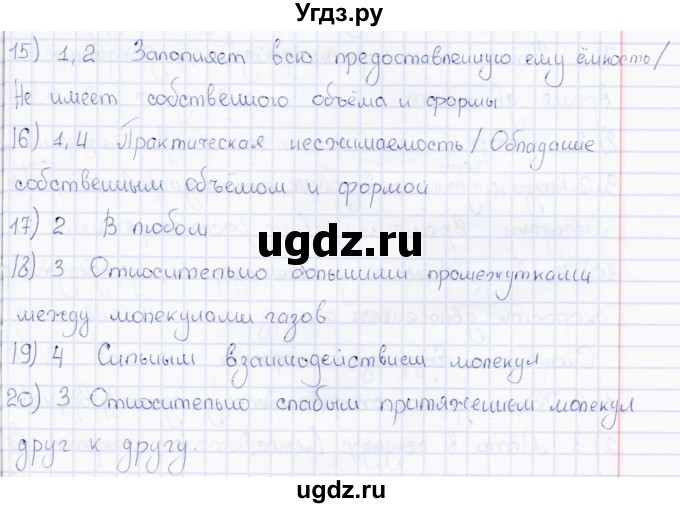 Угдз.ру
15) 1,2 Заполняет всю предоставленную ему ёмкость/
Не имеет собственного объёма и формы
16) 1,4 Практическая несжимаемость/Обладание
собственным объёмом и формой
17) 2 В любом
ugdz.ru
18) 3 Относительно большими промежутками
между молекулами газов
19) 4 Сильным взаимодействием молекул
20) 3 Относительно слабым притяжением молекул
друг к другу.
ugdz.ru